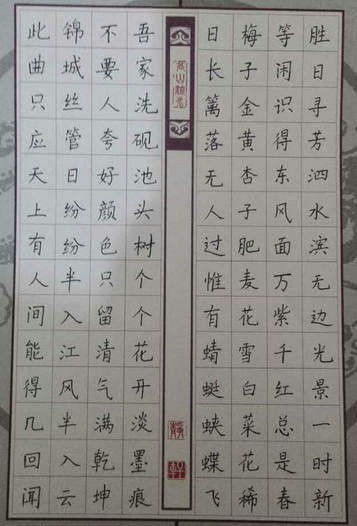 胜日寻芳泗水滨无边光景一时新
等闲识得东风面万紫千红总是春
梅子金黄杏子肥麦花雪白菜花稀
日长篱落无人过惟有蜻蜓蛱蝶飞
吾家洗砚池头树个个花开淡墨痕
不要人夸好颜色只留清气满乾坤
锦城丝管日纷纷半入江风半入云
此曲只应天上有人间能得几回闻